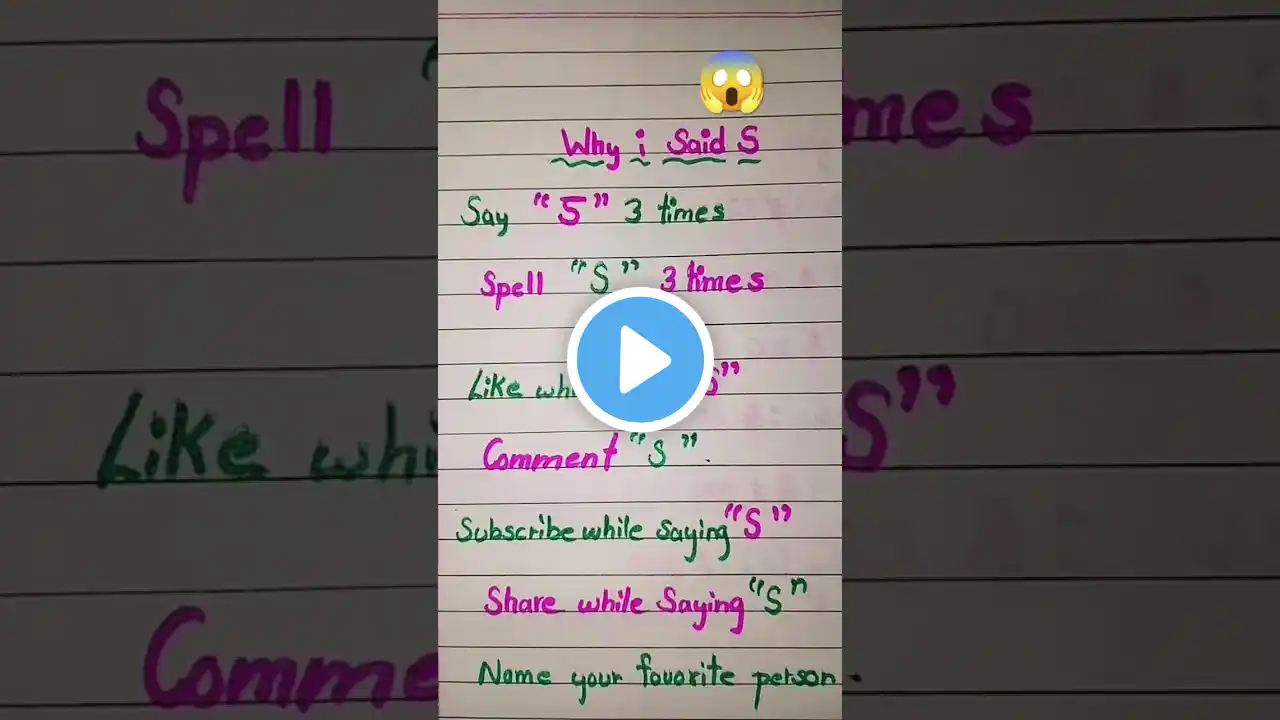 Why i Said S
Say "S" 3 times
Spell "S" 3 times
Like S"
Comment "S".
Subscribe while saying "S"
Share while Saying "S"
Name your favorite person.